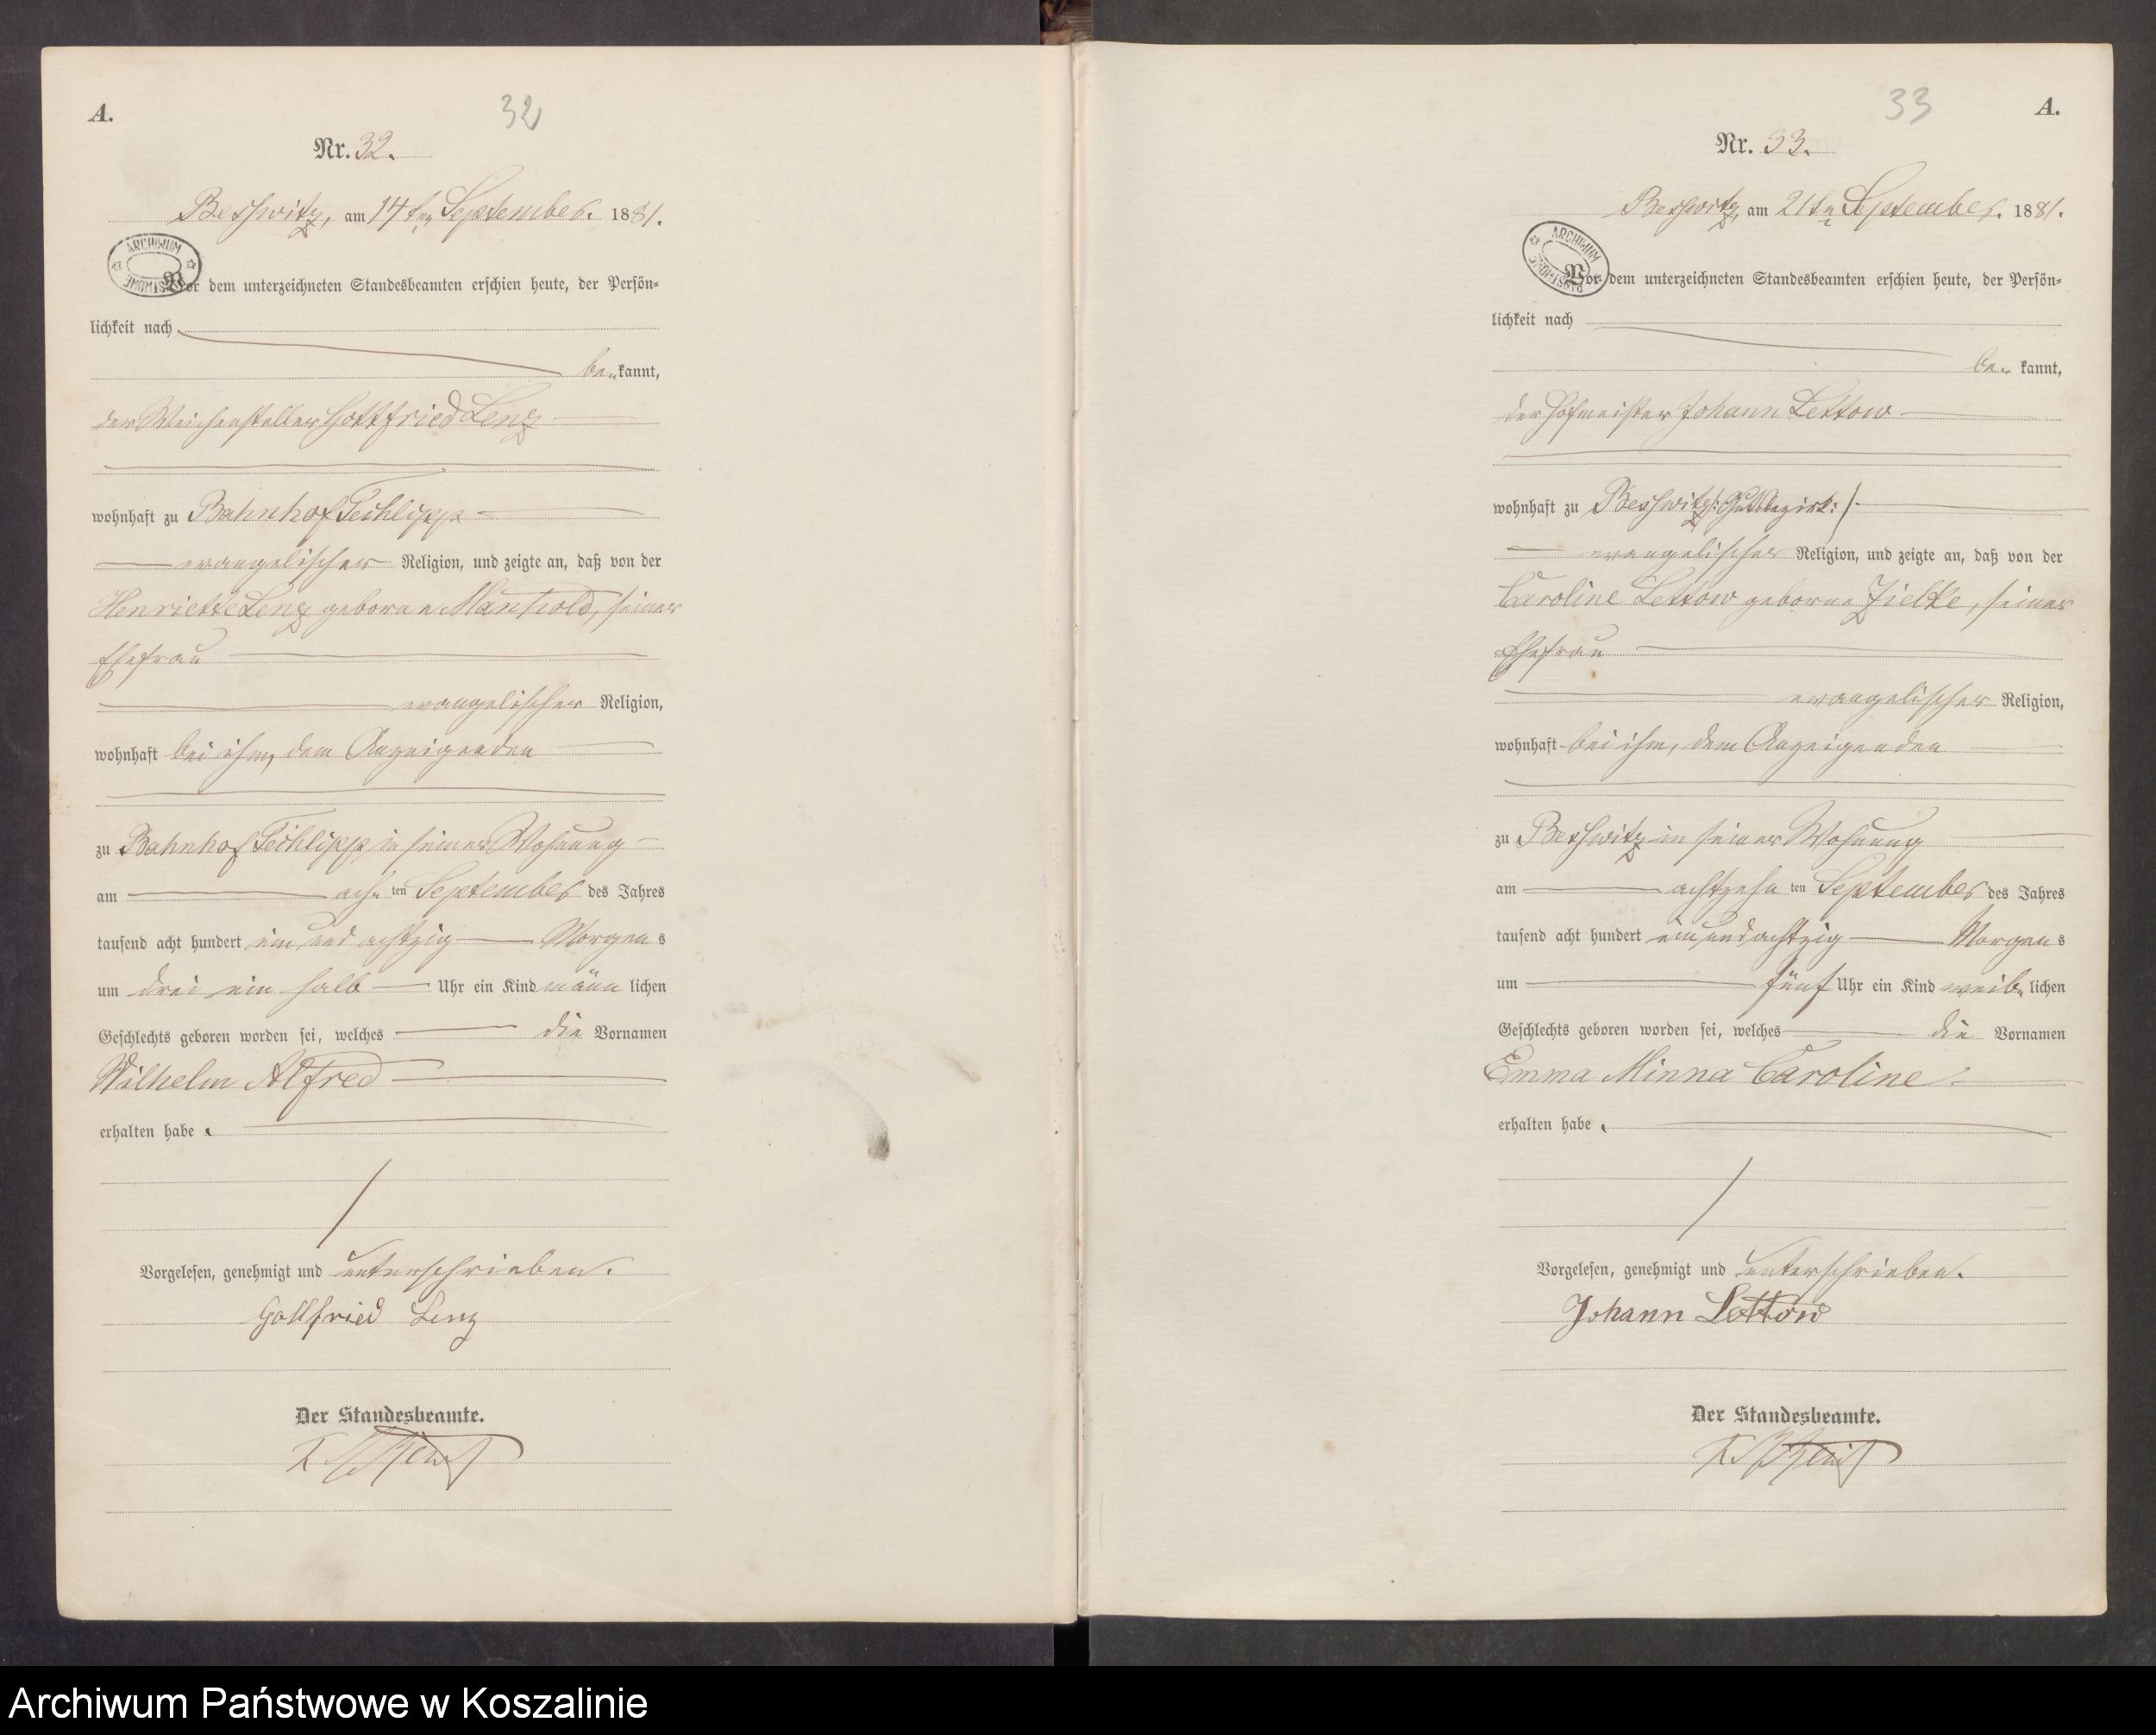 A.
32
Nr. 32.
Beßwitz, am 14ten September. 1881.
ARCHIWUM
Vor dem unterzeichneten Standesbeamten erschien heute, der Persön-
lichkeit nach
be kannt,
der Weichensteller Gottfried Lenz
wohnhaft zu Bahnhof Techlipp
evangelischer Religion, und zeigte an, daß von der
Henriette Lenz geborne Manthold, seiner
Ehefrau
evangelischer Religion,
wohnhaft bei ihm, dem Anzeigenden
zu Bahnhof Techlipp in seiner Wohnung
am ach ten September des Jahres
tausend acht hundert ein und achtzig Morgens
um drei ein halb Uhr ein Kind männlichen
Geschlechts geboren worden sei, welches die Vornamen
Wilhelm Alfred
erhalten habe.
Vorgelesen, genehmigt und unterschrieben.
Gottfried Lenz
Der Standesbeamte.
33
A.
Nr. 33.
Beßwitz, am 21ten September. 1881.
ARCHIWUM
Vor dem unterzeichneten Standesbeamten erschien heute, der Persön-
lichkeit nach
be kannt,
der Hofmeister Johann Lettow
wohnhaft zu Beßwitz /: Gutsbezirk :/
evangelischer Religion, und zeigte an, daß von der
Caroline Lettow geborne Zielke, seiner
Ehefrau
evangelischer Religion,
wohnhaft bei ihm, dem Anzeigenden
zu Beßwitz in seiner Wohnung
am achtzehn ten September des Jahres
tausend acht hundert ein und achtzig Morgens
um fünf Uhr ein Kind weiblichen
Geschlechts geboren worden sei, welches die Vornamen
Emma Minna Caroline
erhalten habe.
Vorgelesen, genehmigt und unterschrieben.
Johann Lettow
Der Standesbeamte.
Archiwum Państwowe w Koszalinie